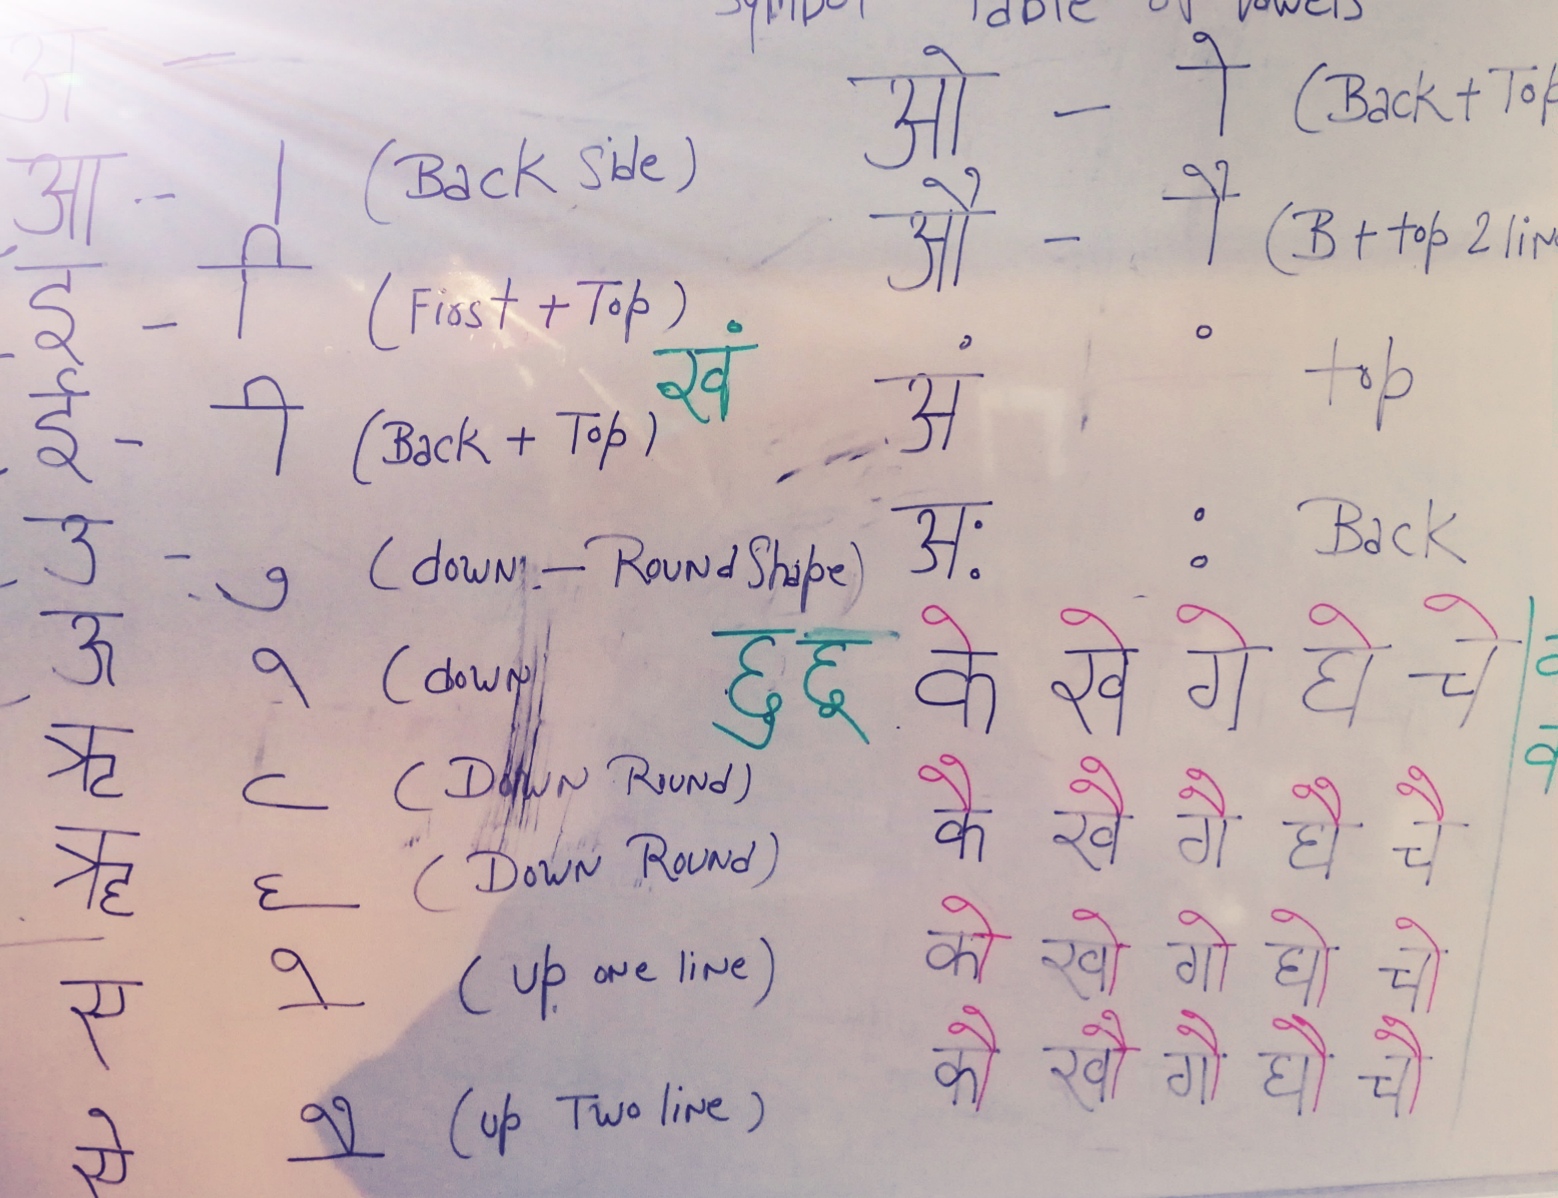 Symbol Table of Vowels
अ -
आ - ा (Back Side)
इ - ि (First + Top)
ई - ी (Back + Top)
खं
उ - ु (down - Round Shape)
ऊ ू (down)
ऋ ृ (Down Round)
ॠ ॄ (Down Round)
ए े (up one line)
ऐ ै (up Two line)
ओ - ो (Back + Top
औ - ौ (B + top 2 lin
अं ं top
अः : Back
के खे गे घे चे
कै खै गै घै चै
को खो गो घो चो
कौ खौ गौ घौ चौ